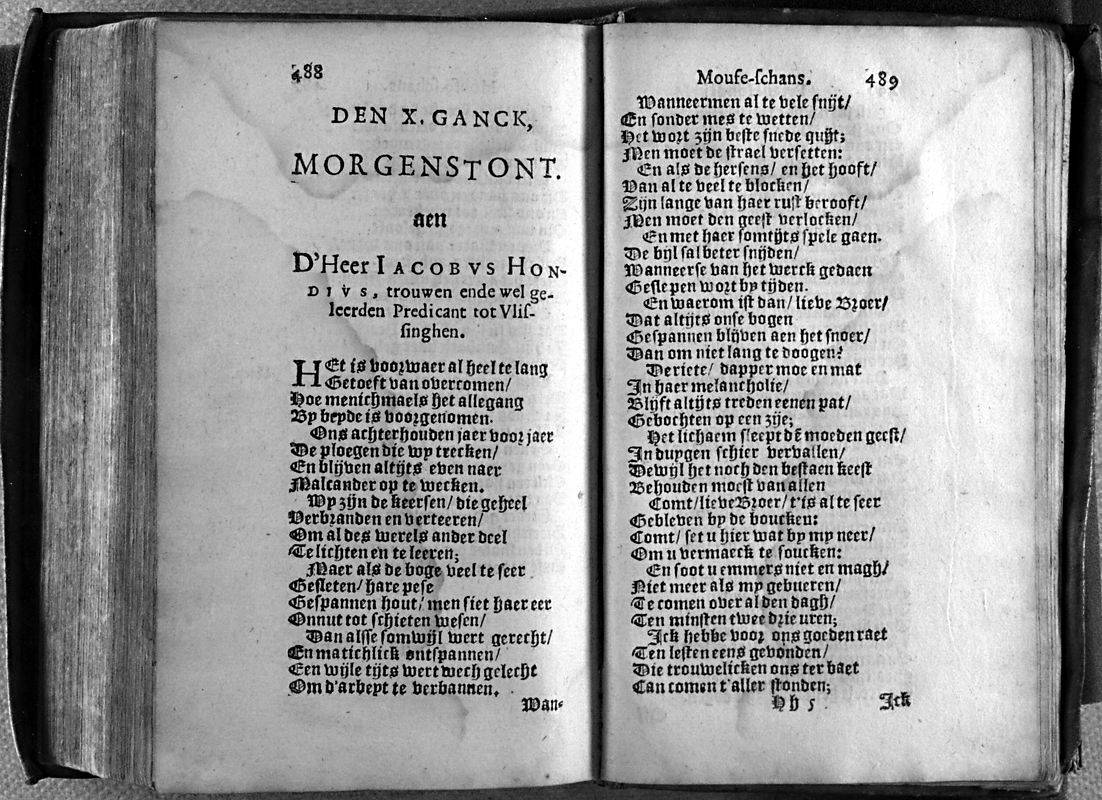 488
DEN X. GANCK,
MORGENSTONT.
aen
D'Heer IACOBVS HON-
DIVS, trouwen ende wel ge-
leerden Predicant tot Vlis-
singhen.
HEt is voorwaer al heel te lang
Getoeft van overcomen/
Hoe menichmaels het allegang
By beyde is voorgenomen.
Ons achterhouden jaer voor jaer
De ploegen die wy trecken/
En blijven altijts even naer
Malcander op te wecken.
Wy zijn de keersen/ die geheel
Verbranden en verteeren/
Om al des werels ander deel
Te lichten en te leeren;
Maer als de boge veel te seer
Gesleten/ hare pese
Gespannen hout/ men siet haer eer
Onnut tot schieten wesen/
Dan alsse somwijl wert gerecht/
En matichlick ontspannen/
Een wijle tijts wert wech gelecht
Om d'arbeyt te verbannen.
Wan-
Mouse-schans. 489
Wanneermen al te vele snijt/
En sonder mes te wetten/
Het wort zijn beste snede quijt;
Men moet de strael versetten:
En als de hersens/ en het hooft/
Van al te veel te blocken/
Zijn lange van haer rust berooft/
Men moet den geest verlocken/
En met haer somtijts spele gaen.
De bijl sal beter snijden/
Wanneerse van het werck gedaen
Geslepen wort by tijden.
En waerom ist dan/ lieve Broer/
Dat altijts onse bogen
Gespannen blijven aen het snoer/
Dan om niet lang te doogen?
De riete/ dapper moe en mat
In haer melancholie/
Blijft altijts treden eenen pat/
Gebochten op een zije;
Het lichaem sleept dē moeden geest/
In duygen schier vervallen/
Dewijl het noch den bestaen keest
Behouden moest van allen
Comt/ lieve Broer/ t'is al te seer
Gebleven by de boucken:
Comt/ set u hier wat by my neer/
Om u vermaeck te soucken:
En soot u emmers niet en magh/
Niet meer als my gebueren/
Te comen over al den dagh/
Ten minsten twee drie uren;
Ick hebbe voor ons goeden raet
Ten lesten eens gevonden/
Die trouwelicken ons ter baet
Can comen t'aller stonden;
Hh 5 Ick